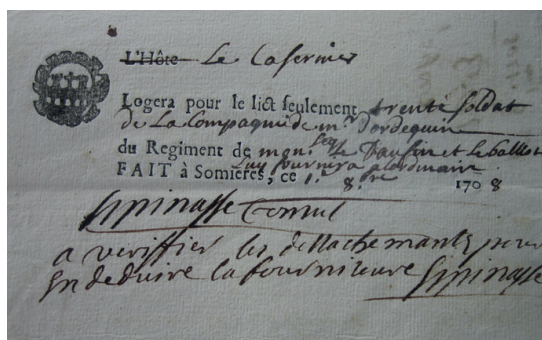 L'Hôte Le Casernier
Logera pour le lict seulement trente soldat
de La Compagnie de mr Dordeguin
du Regiment de mon seig le Daufin et le
Luy fournira alordinaire
FAIT à Somieres, ce 1. 8.bre 1708
Espinasse Consul
a veriffier les dettachemants pour
En deduire la fourniture Espinasse